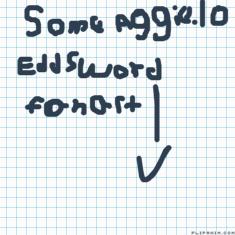 Some Aggie.lo
Eddsword
fanart
FLIPANIM.COM